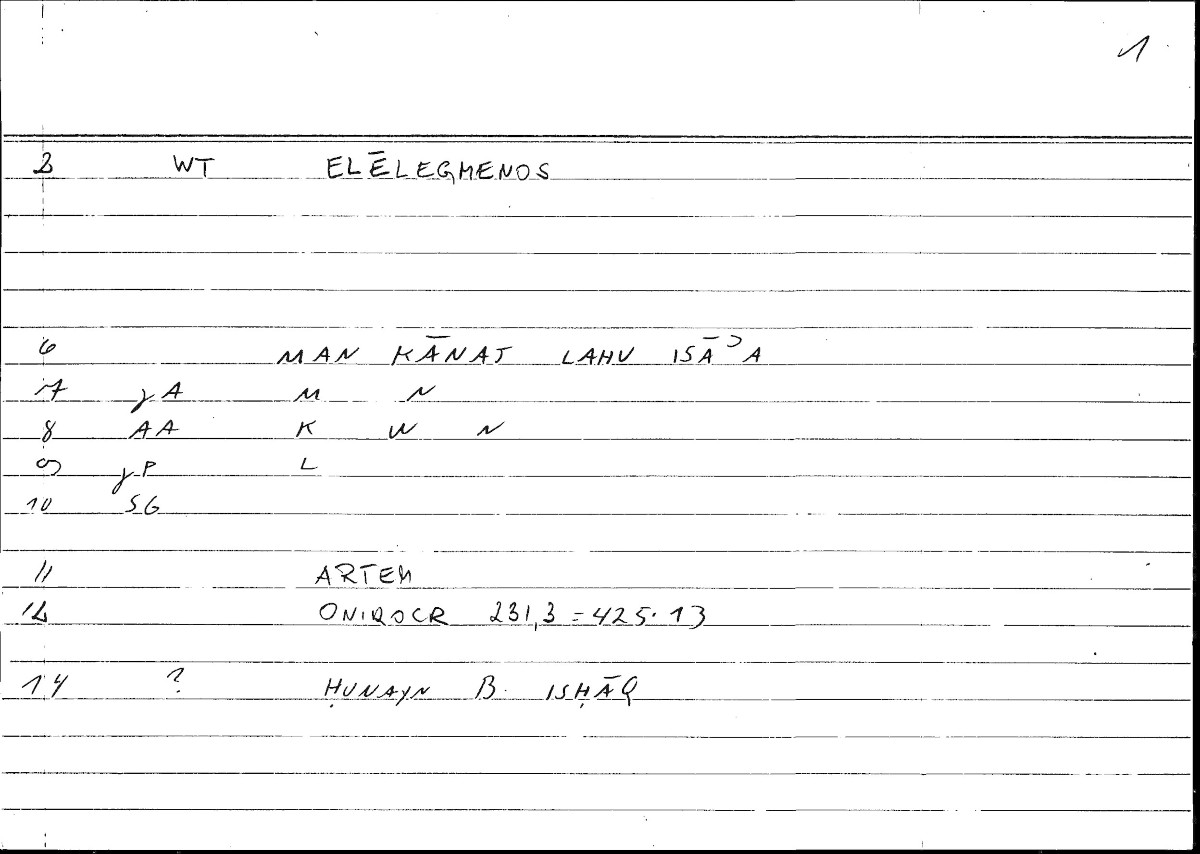 1
2 WT ELĒLEGMENOS
6 MAN KĀNAT LAHU ISĀʾA
7 γA M N
8 AA K W N
9 γP L
10 SG
11 ARTEM
12 ONIROCR 231,3 = 425.13
14 ? ḤUNAYN B. ISḤĀQ